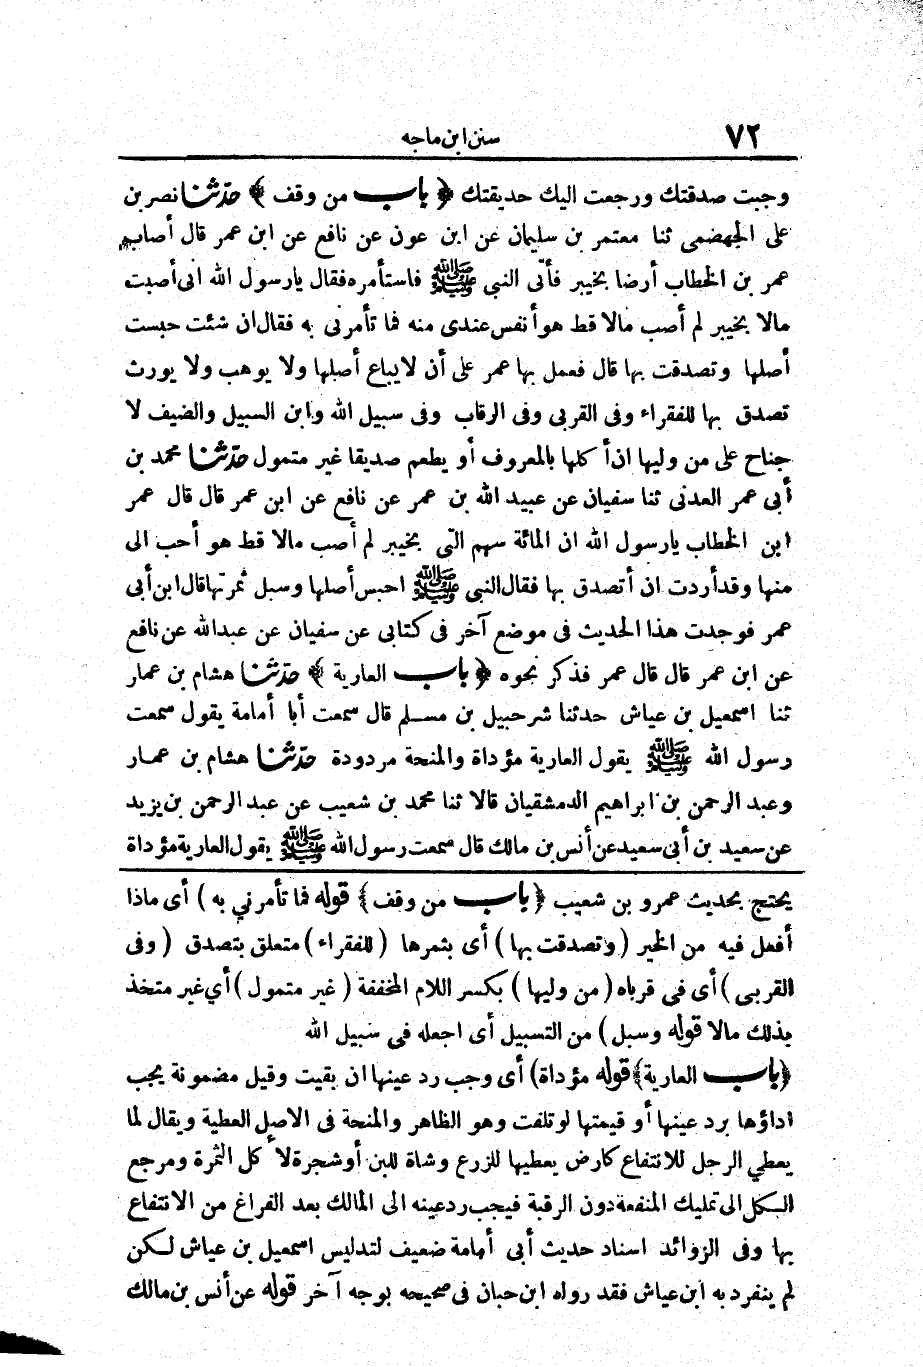 ٧٢
سنن ابن ماجه
وجبت صدقتك ورجعت اليك حديقتك ﴿ باب من وقف ﴾ حدّثنا نصر بن
على الجهضمى ثنا معتمر بن سليمان عن ابن عون عن نافع عن ابن عمر قال أصاب
عمر بن الخطاب أرضا بخيبر فأتى النبى ﷺ فاستأمره فقال يارسول الله انى أصبت
مالا بخيبر لم أصب مالا قط هو أنفس عندى منه فما تأمرنى به فقال ان شئت حبست
أصلها وتصدقت بها قال فعمل بها عمر على أن لايباع أصلها ولا يوهب ولا يورث
تصدق بها للفقراء وفى القربى وفى الرقاب وفى سبيل الله وابن السبيل والضيف لا
جناح على من وليها ان أكلها بالمعروف أو يطعم صديقا غير متمول حدّثنا محمد بن
أبى عمر العدنى ثنا سفيان عن عبيد الله بن عمر عن نافع عن ابن عمر قال قال عمر
ابن الخطاب يارسول الله ان المائة سهم التى بخيبر لم أصب مالا قط هو أحب الى
منها وقد أردت ان أتصدق بها فقال النبى ﷺ احبس أصلها وسبل ثمرتها قال ابن أبى
عمر فوجدت هذا الحديث فى موضع آخر فى كتابى عن سفيان عن عبدالله عن نافع
عن ابن عمر قال قال عمر فذكر نحوه ﴿ باب العارية ﴾ حدّثنا هشام بن عمار
ثنا اسمعيل بن عياش حدثنا شرحبيل بن مسلم قال سمعت أبا أمامة يقول سمعت
رسول الله ﷺ يقول العارية مؤداة والمنحة مردودة حدّثنا هشام بن عمار
وعبد الرحمن بن ابراهيم الدمشقيان قالا ثنا محمد بن شعيب عن عبد الرحمن بن يزيد
عن سعيد بن أبى سعيد عن أنس بن مالك قال سمعت رسول الله ﷺ يقول العارية مؤداة
يحتج بحديث عمرو بن شعيب ﴿ باب من وقف ﴾ قوله فما تأمرني به ) أى ماذا
أفعل فيه من الخير ( وتصدقت بها ) أى بثمرها ( للفقراء ) متعلق بتصدق ( وفى
القربى ) أى فى قرباه ( من وليها ) بكسر اللام المخففة ( غير متمول ) أي غير متخذ
بذلك مالا قوله وسبل ) من التسبيل أى اجعله فى سبيل الله
﴿ باب العارية ﴾ قوله مؤداة) أى وجب رد عينها ان بقيت وقيل مضمونة يجب
اداؤها برد عينها أو قيمتها لو تلفت وهو الظاهر والمنحة فى الاصل العطية ويقال لما
يعطي الرجل للانتفاع كارض يعطيها للزرع وشاة للبن أو شجرة لأكل الثمرة ومرجع
الكل الى تمليك المنفعة دون الرقبة فيجب رد عينه الى المالك بعد الفراغ من الانتفاع
بها وفى الزوائد اسناد حديث أبى أمامة ضعيف لتدليس اسمعيل بن عياش لكن
لم ينفرد به ابن عياش فقد رواه ابن حبان فى صحيحه بوجه آخر قوله عن أنس بن مالك